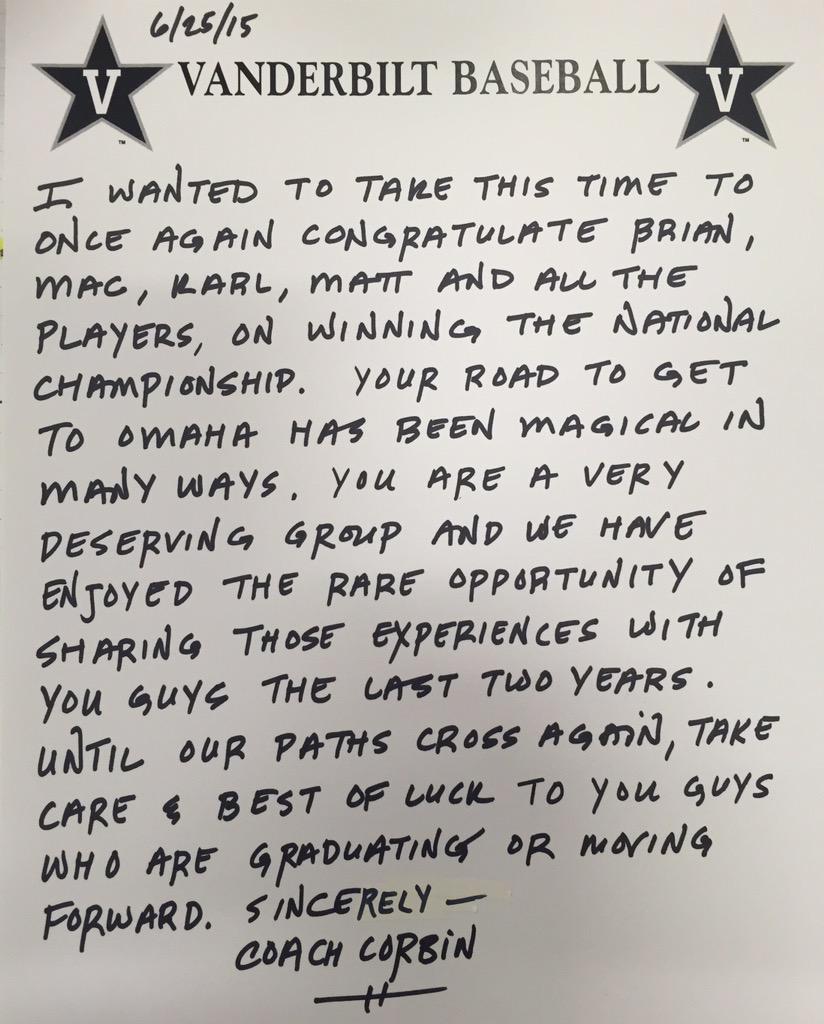 6/25/15
V VANDERBILT BASEBALL V
TM TM
I WANTED TO TAKE THIS TIME TO
ONCE AGAIN CONGRATULATE BRIAN,
MAC, KARL, MATT AND ALL THE
PLAYERS, ON WINNING THE NATIONAL
CHAMPIONSHIP. YOUR ROAD TO GET
TO OMAHA HAS BEEN MAGICAL IN
MANY WAYS. YOU ARE A VERY
DESERVING GROUP AND WE HAVE
ENJOYED THE RARE OPPORTUNITY OF
SHARING THOSE EXPERIENCES WITH
YOU GUYS THE LAST TWO YEARS.
UNTIL OUR PATHS CROSS AGAIN, TAKE
CARE & BEST OF LUCK TO YOU GUYS
WHO ARE GRADUATING OR MOVING
FORWARD. SINCERELY —
COACH CORBIN